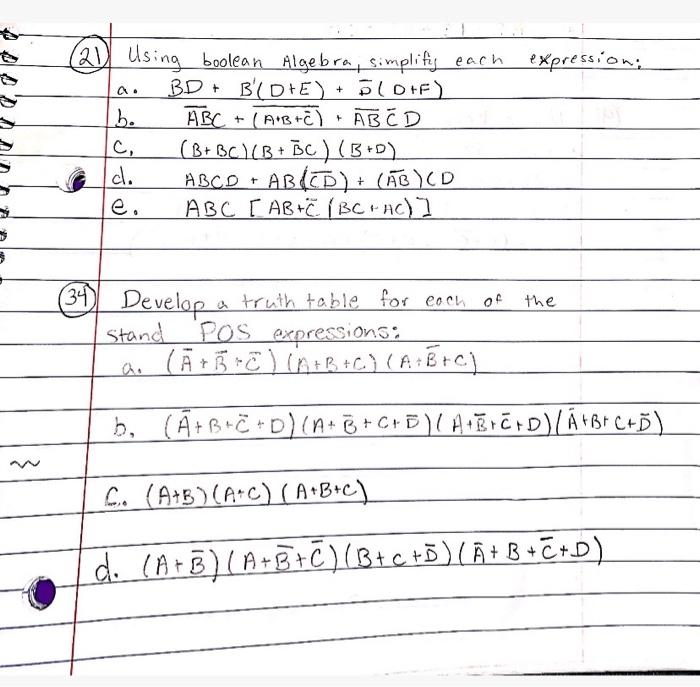 (21) Using boolean Algebra, simplify each expression:
a. BD + B'(D+E) + D̅(D+F)
b. A̅B̅C + (A̅+̅B̅+̅C̅̅) + A̅B̅C̅D
C, (B+BC)(B+B̅C)(B+D)
d. ABCD + AB(C̅D̅) + (A̅B̅)CD
e. ABC [AB+C̅(BC+AC)]
(34) Develop a truth table for each of the
stand POS expressions:
a. (A̅+B̅+C̅)(A+B+C)(A+B̅+C)
b, (A̅+B+C̅+D)(A+B̅+C+D̅)(A+B̅+C̅+D)(A̅+B+C+D̅)
C. (A+B)(A+C)(A+B+C)
d. (A+B̅)(A+B̅+C̅)(B+C+D̅)(A̅+B+C̅+D)